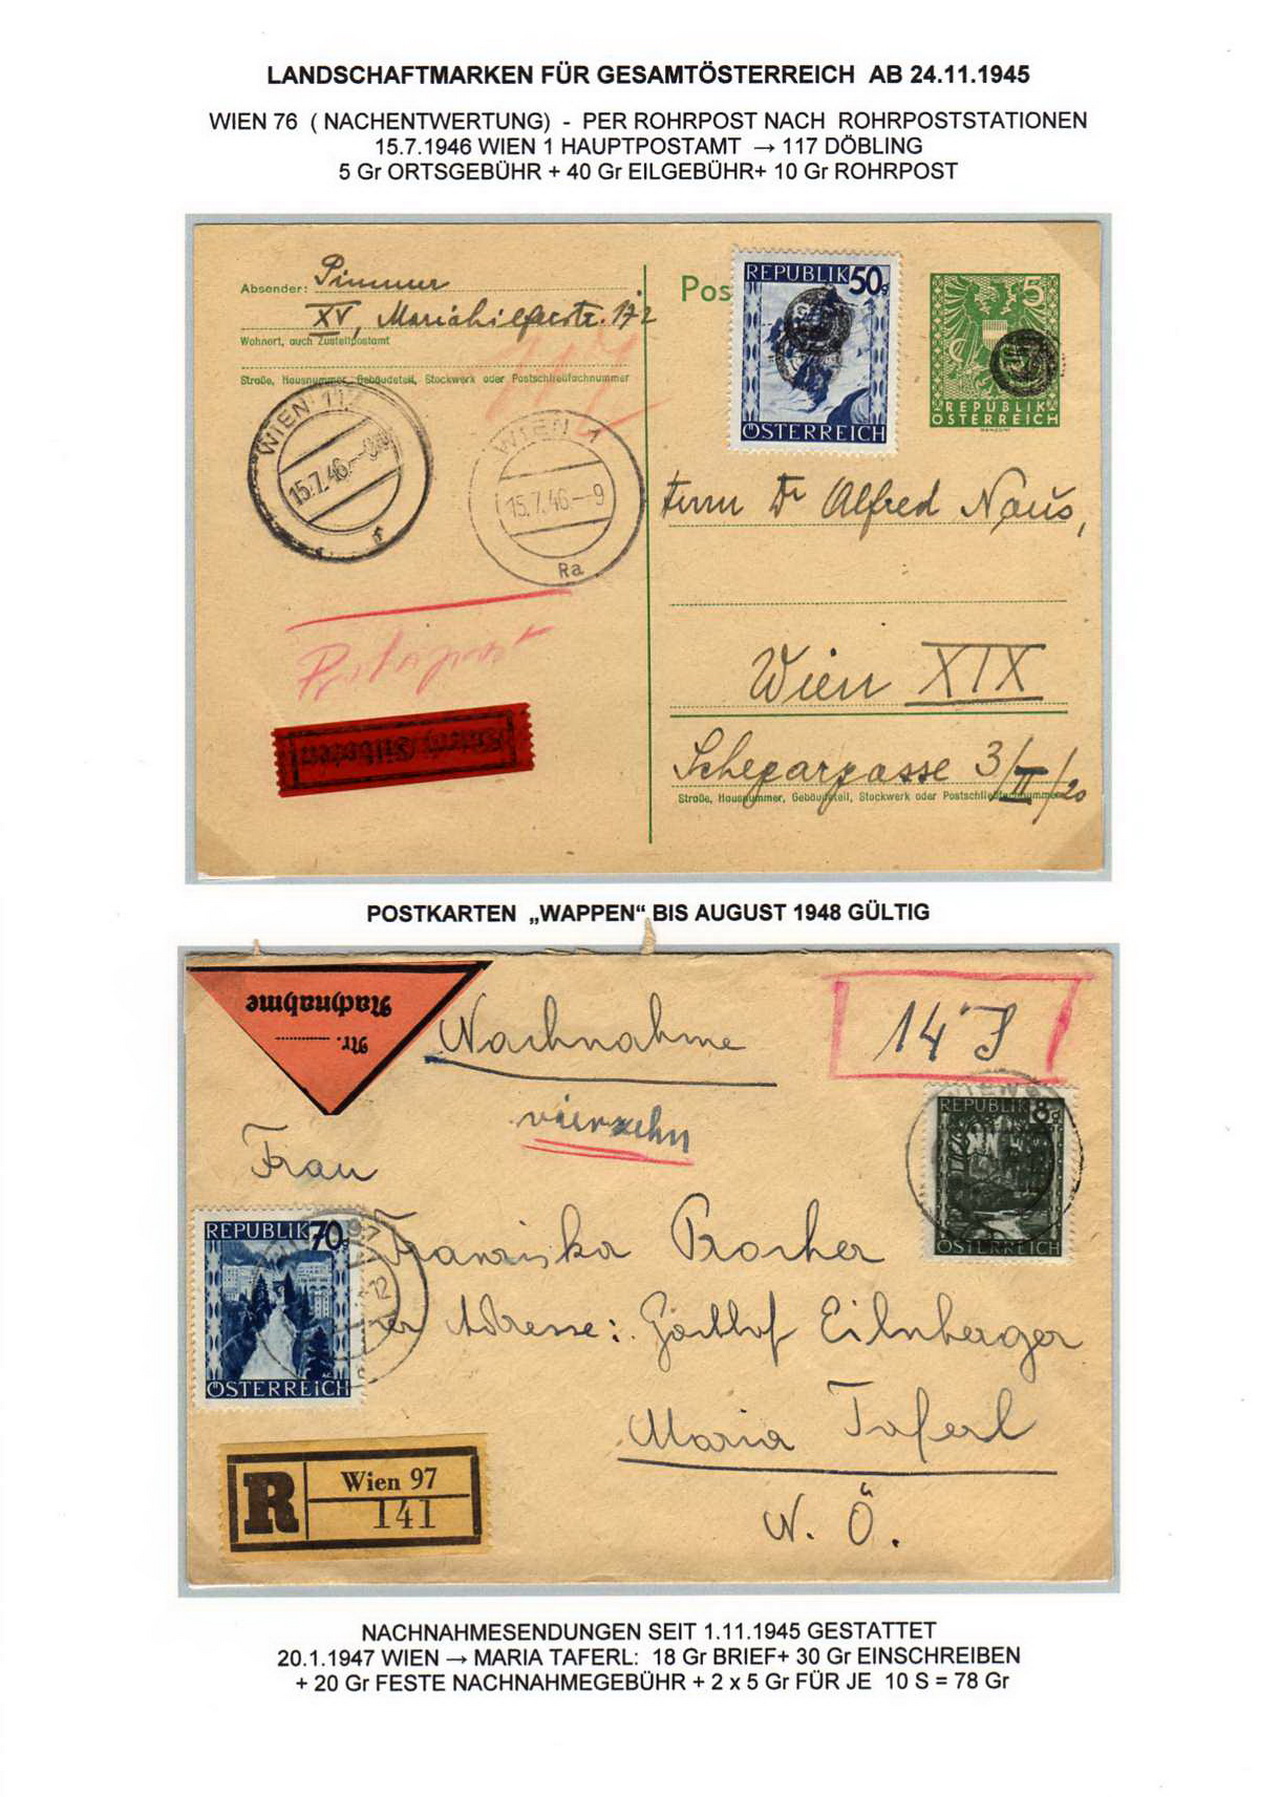 LANDSCHAFTMARKEN FÜR GESAMTÖSTERREICH AB 24.11.1945
WIEN 76 ( NACHENTWERTUNG) - PER ROHRPOST NACH ROHRPOSTSTATIONEN
15.7.1946 WIEN 1 HAUPTPOSTAMT → 117 DÖBLING
5 Gr ORTSGEBÜHR + 40 Gr EILGEBÜHR+ 10 Gr ROHRPOST
Absender:
XV, Mariahilferstr. 172
Wohnort, auch Zustellpostamt
Straße, Hausnummer, Gebäudeteil, Stockwerk oder Postschließfachnummer
117
WIEN 117
15.7.46
WIEN 1
15.7.46.--9
Ra
Rohrpost
Durch Eilboten
Pos
REPUBLIK 50g
ÖSTERREICH
5
REPUBLIK
ÖSTERREICH
Herrn Dr Alfred Naus,
Wien XIX
3/II/20
Straße, Hausnummer, Gebäudeteil, Stockwerk oder Postschließfachnummer
POSTKARTEN „WAPPEN“ BIS AUGUST 1948 GÜLTIG
Nachnahme
Nr.
Nachnahme
14 S
vierzehn
REPUBLIK 8g
ÖSTERREICH
Frau
REPUBLIK 70g
ÖSTERREICH
97
12
Franziska Procher
Adresse: Gasthof Eilnberger
Maria Taferl
N. Ö.
R
Wien 97
141
NACHNAHMESENDUNGEN SEIT 1.11.1945 GESTATTET
20.1.1947 WIEN → MARIA TAFERL: 18 Gr BRIEF+ 30 Gr EINSCHREIBEN
+ 20 Gr FESTE NACHNAHMEGEBÜHR + 2 x 5 Gr FÜR JE 10 S = 78 Gr